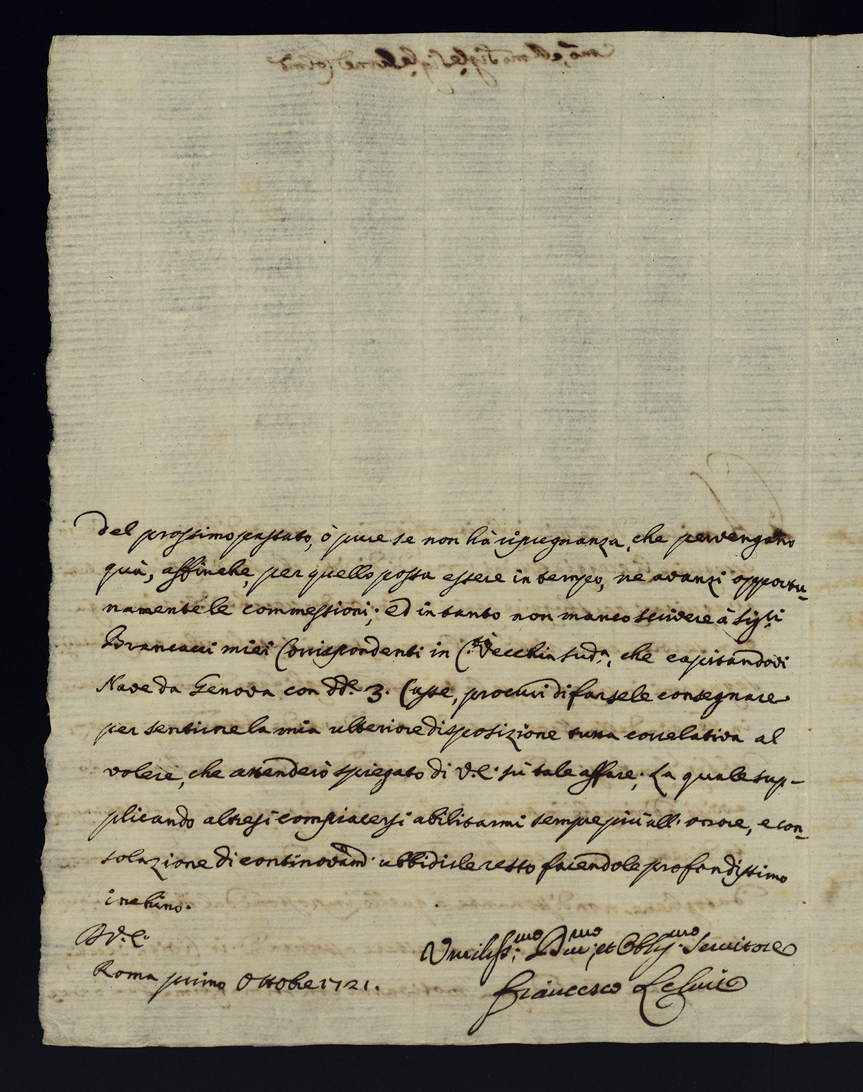 del prossimo passato, ò pure se non hà ripugnanza, che pervengano
quà, affinche per quello possa essere in tempo, ne avanzi opportu-
namente le commessioni; ed in tanto non manco scrivere à Sig.ri
Brancacci miei Corrispondenti in C.à Vecchia sud.a, che capitandovi
Nave da Genova con dd.e 3. Casse, procuri di farsele consegnare
per sentirne la mia ulteriore disposizione tutta correlativa al
volere, che attenderò spiegato di V.E. sù tale affare; La quale sup-
plicando altresi compiacersi abilitarmi sempre più all'onore, e con-
solazione di continovam.e ubbidirle resto facendole profondissimo
inchino.
D V.E.
Roma primo Ottobre 1721.
Umiliss.mo Dev.mo, et Oblig.mo Servitore
Francesco